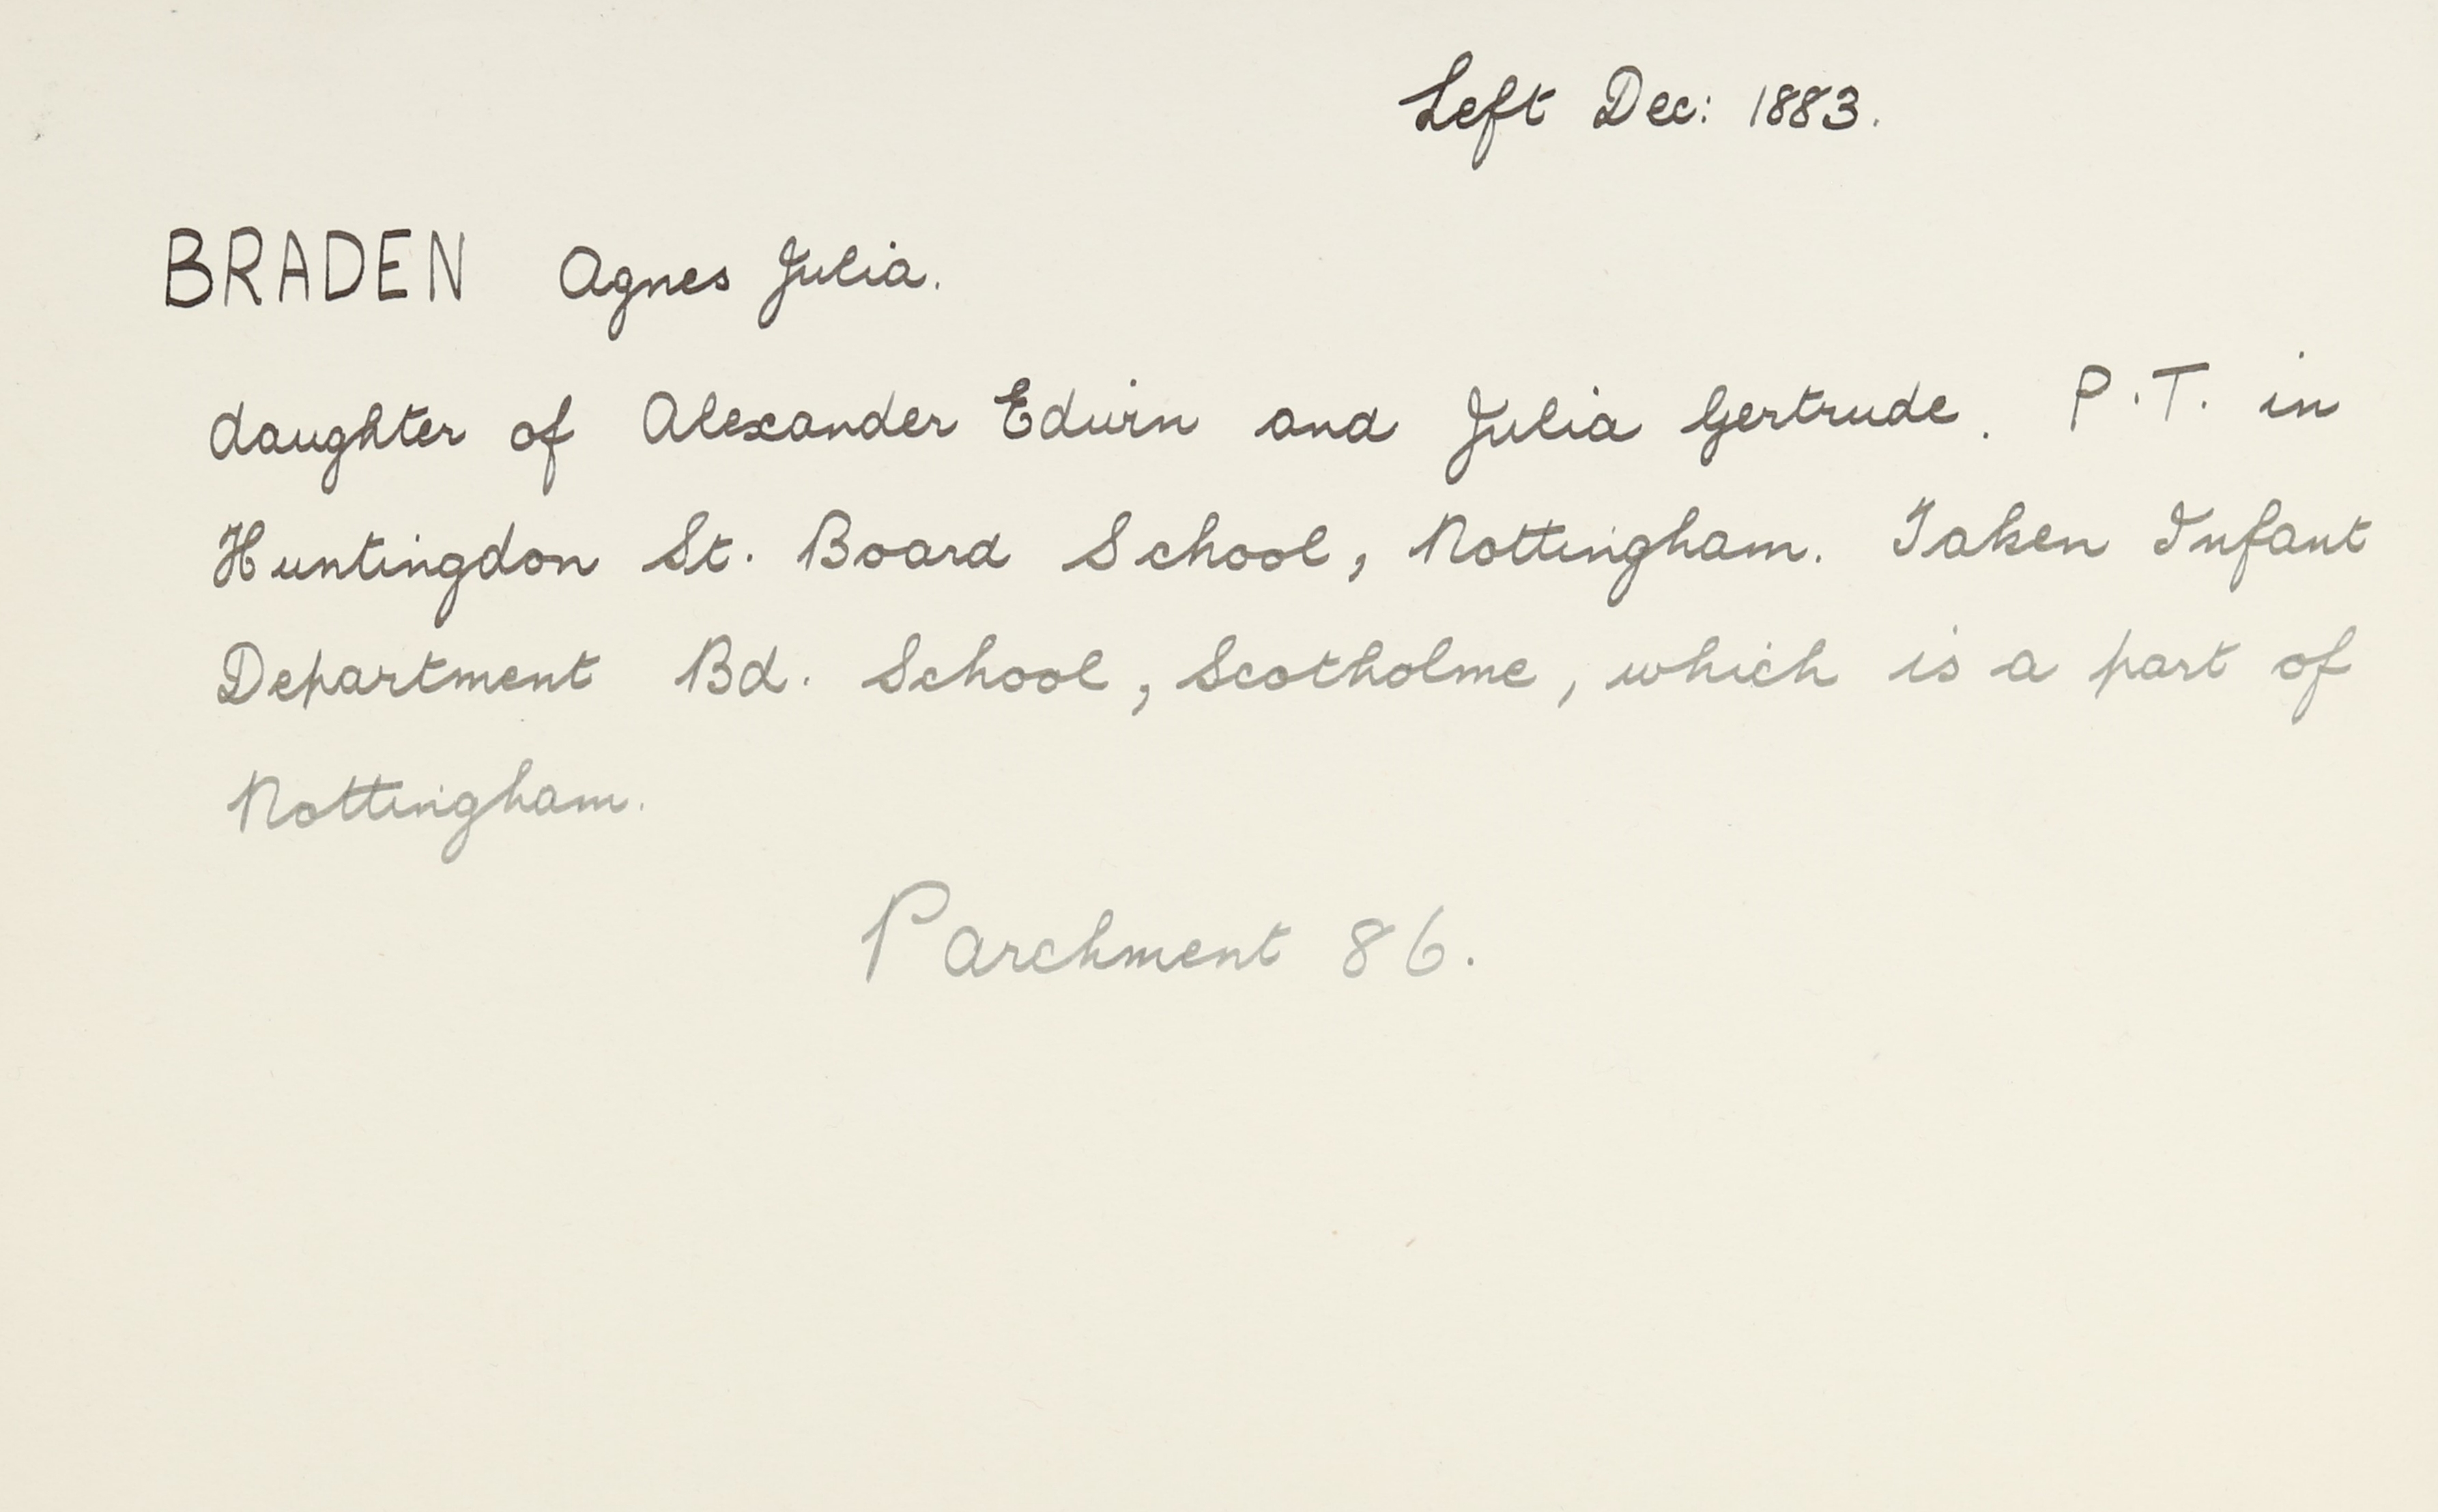 Left Dec: 1883.
BRADEN Agnes Julia.
daughter of Alexander Edwin and Julia Gertrude. P.T. in
Huntingdon St. Board School, Nottingham. Taken Infant
Department Bd. School, Scotholme, which is a part of
Nottingham.
Parchment 86.